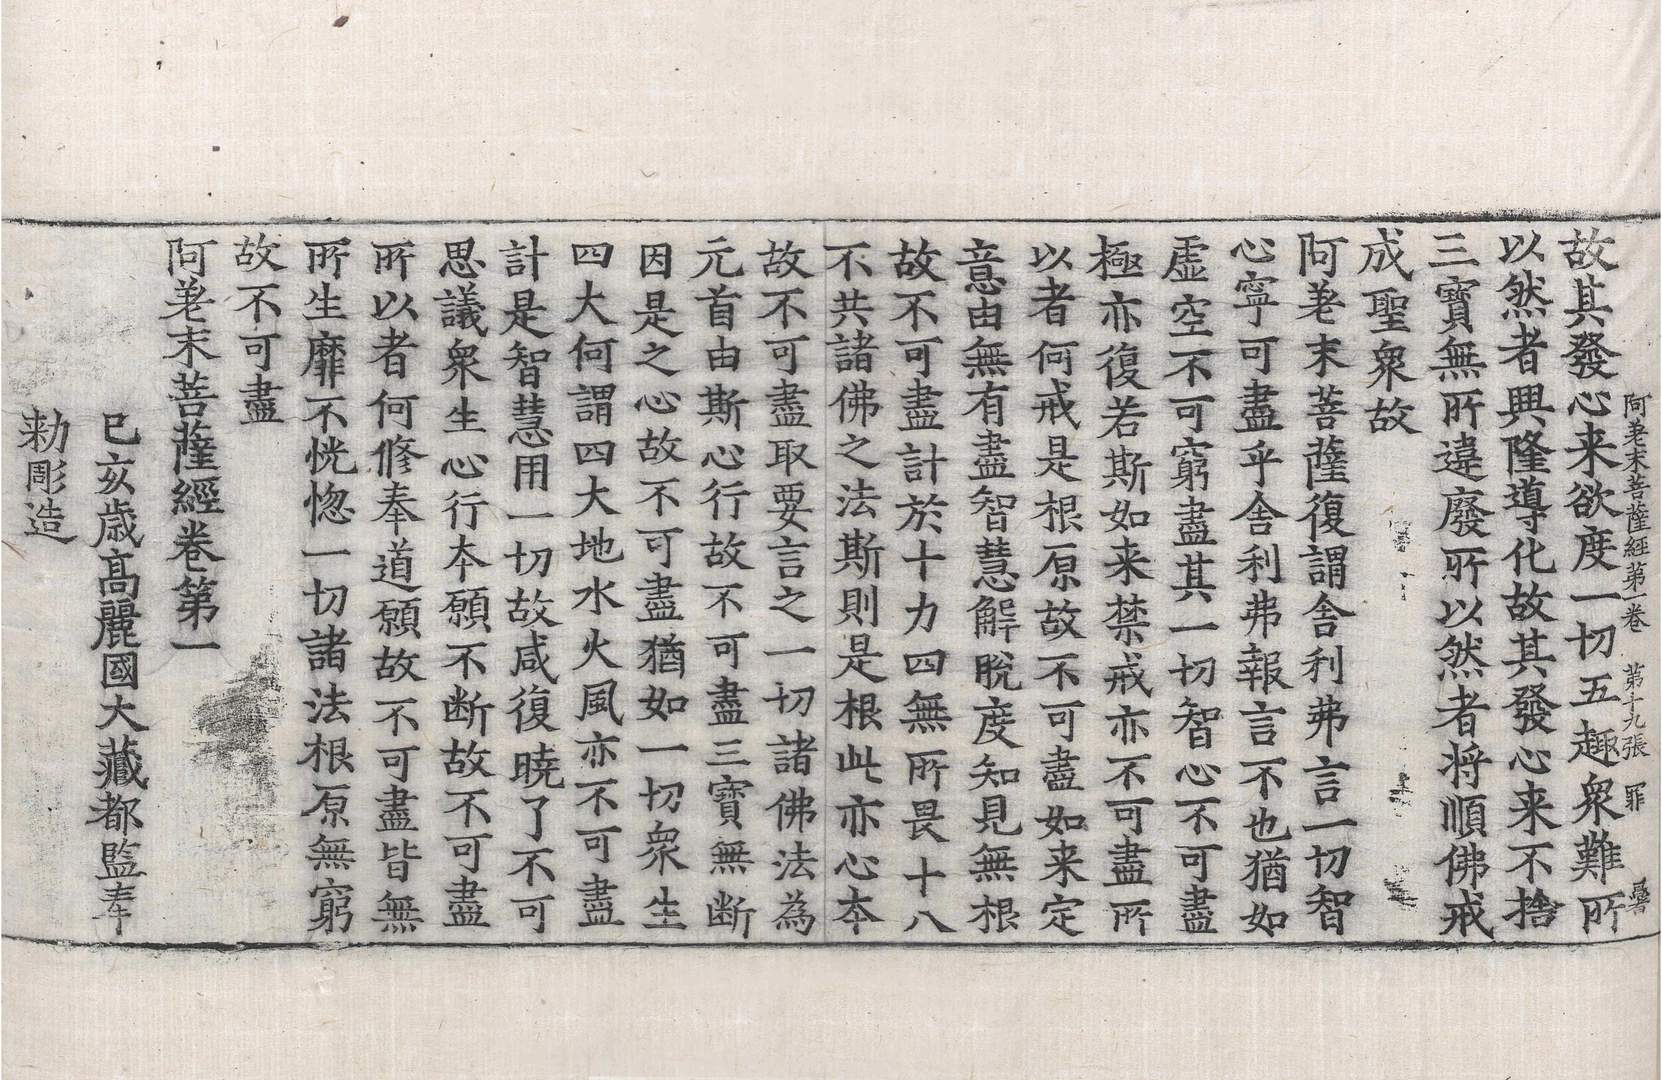 阿差末菩薩經第一卷 第十九張 罪
故其發心来欲度一切五趣衆難所
以然者興隆導化故其發心来不捨
三寶無所違廢所以然者将順佛戒
成聖衆故
阿差末菩薩復謂舍利弗言一切智
心寧可盡乎舍利弗報言不也猶如
虛空不可窮盡其一切智心不可盡
極亦復若斯如来禁戒亦不可盡所
以者何戒是根原故不可盡如来定
意由無有盡智慧解脫度知見無根
故不可盡計於十力四無所畏十八
不共諸佛之法斯則是根此亦心本
故不可盡取要言之一切諸佛法為
元首由斯心行故不可盡三寶無断
因是之心故不可盡猶如一切衆生
四大何謂四大地水火風亦不可盡
計是智慧用一切故咸復曉了不可
思議衆生心行本願不断故不可盡
所以者何修奉道願故不可盡皆無
所生靡不恍惚一切諸法根原無窮
故不可盡
阿差末菩薩經卷第一
己亥歲高麗國大藏都監奉
勅彫造